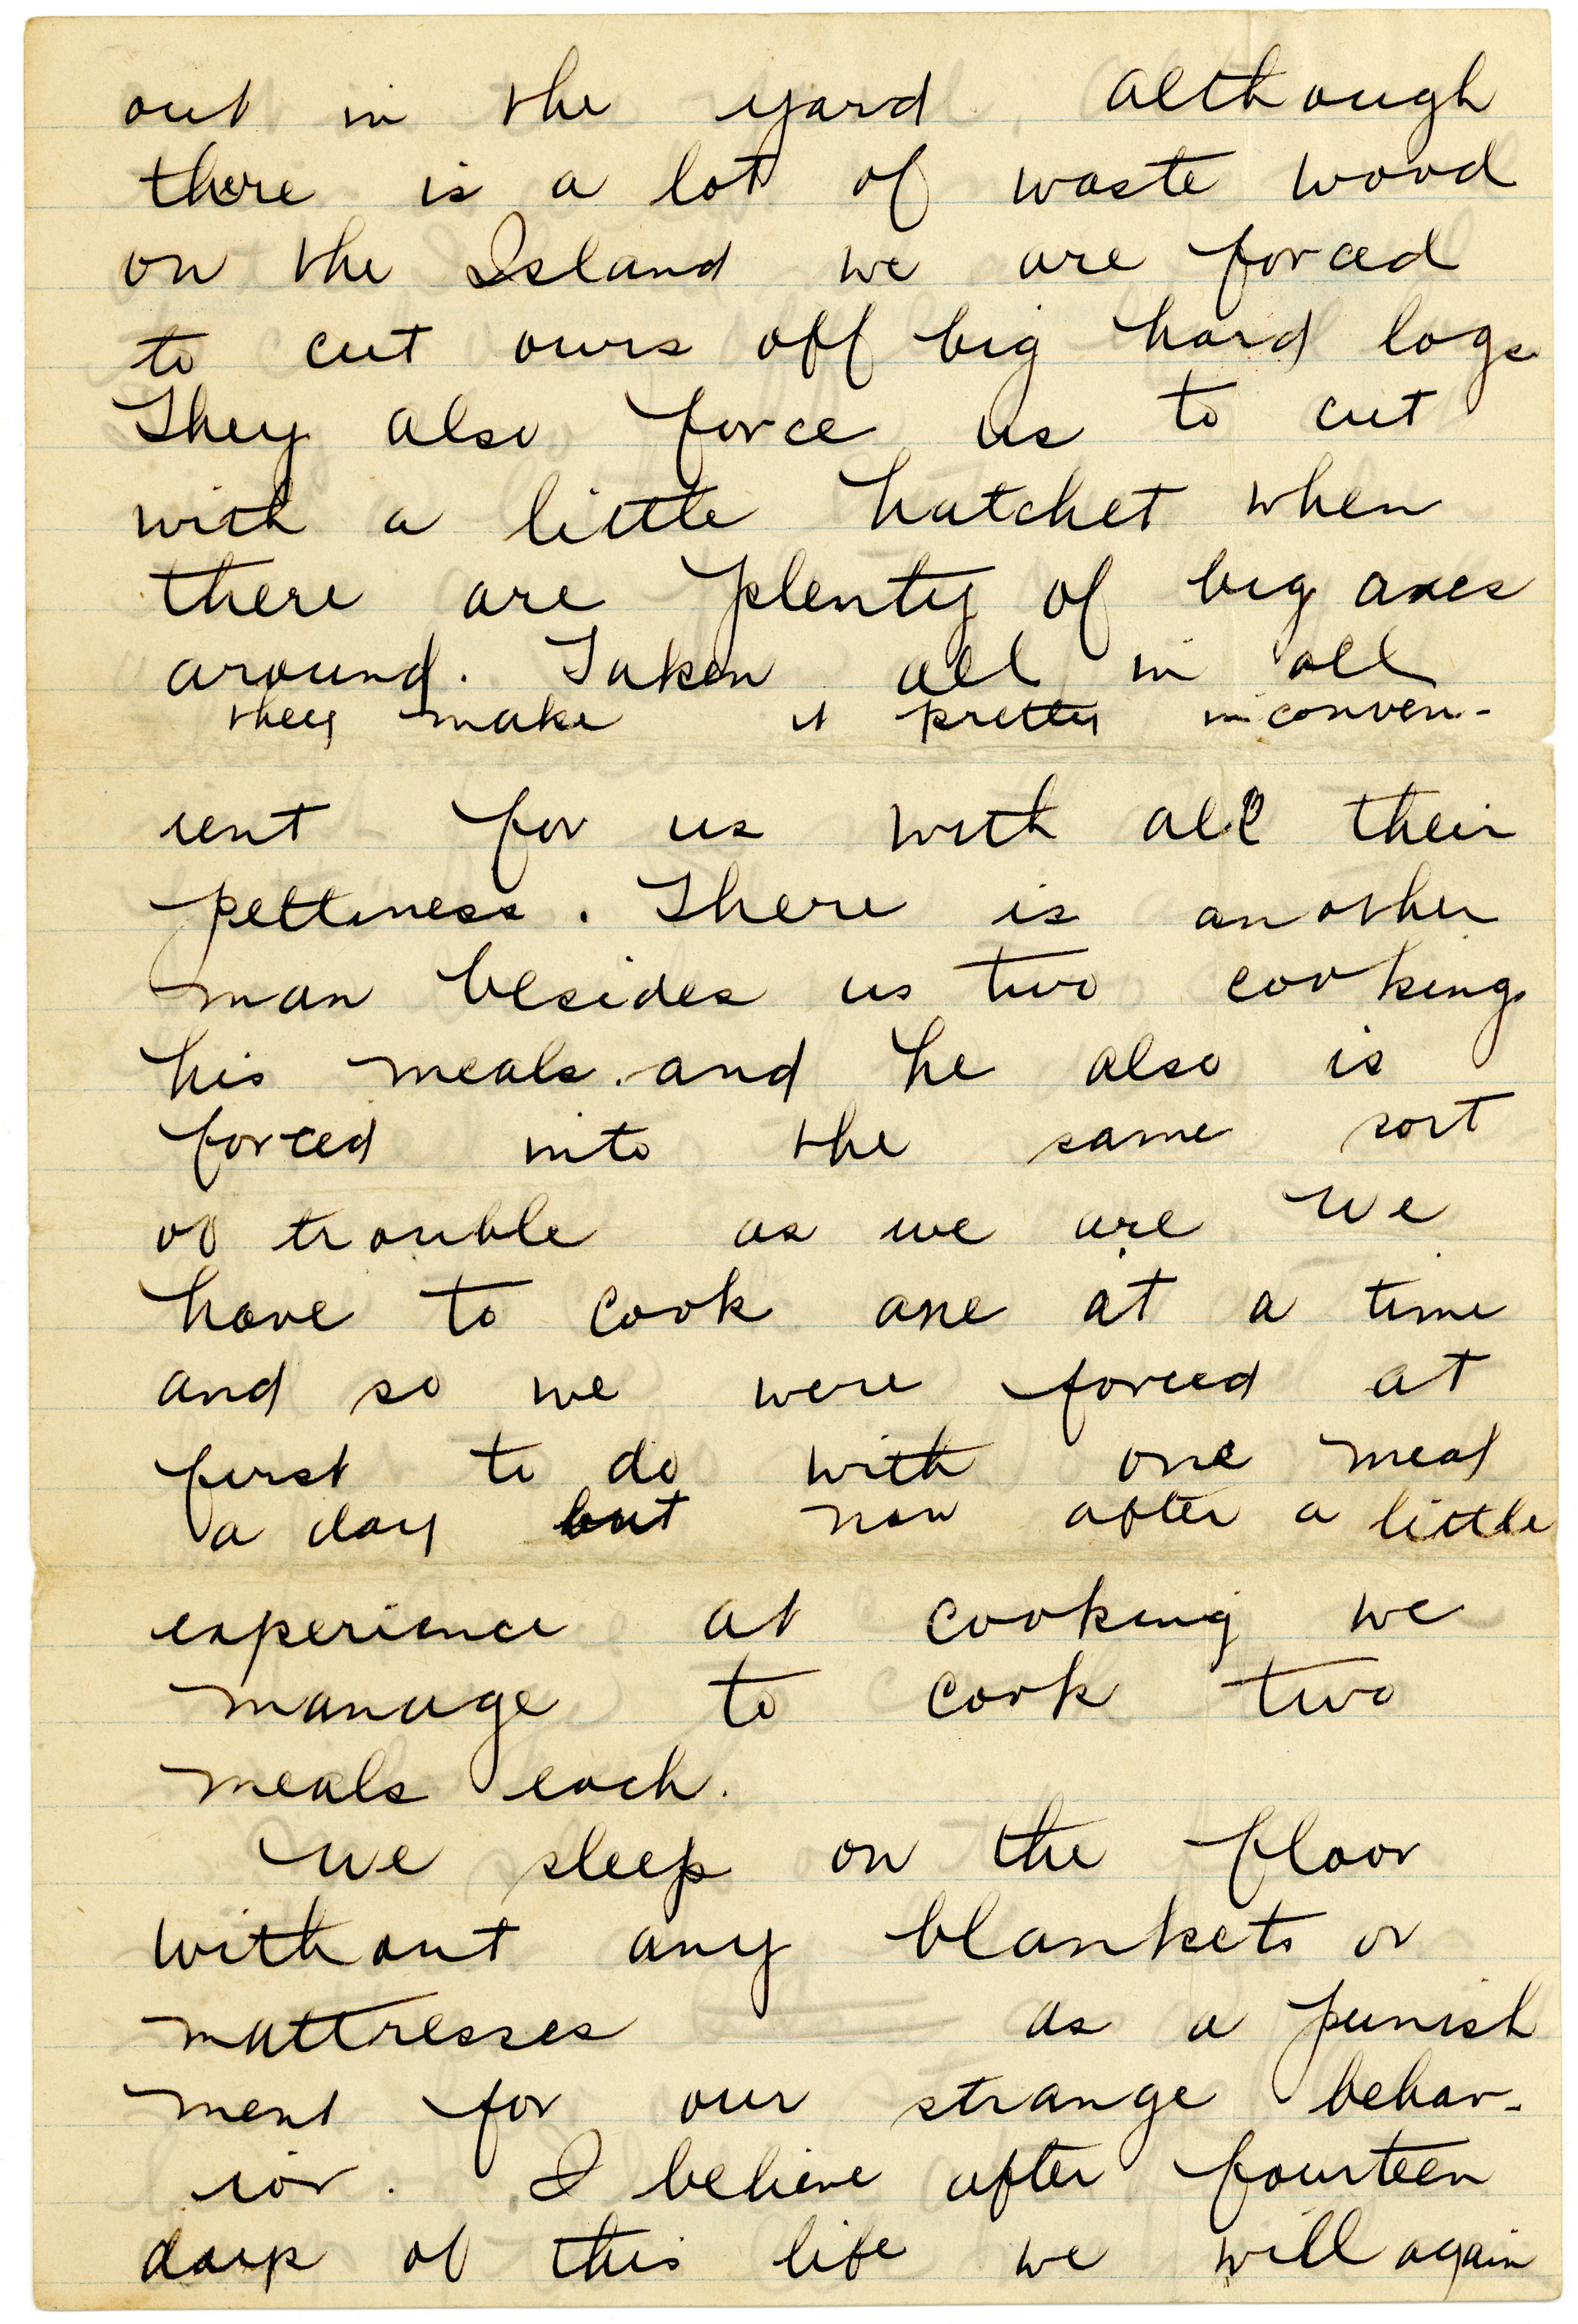 out in the yard although
there is a lot of waste wood
on the Island we are forced
to cut ours off big hard logs
They also force us to cut
with a little hatchet when
there are plenty of big axes
around. Taken all in all
they make it pretty inconven-
ient for us with all their
pettiness. There is another
man besides us two cooking
his meals and he also is
forced into the same sort
of trouble as we are We
have to cook one at a time
and so we were forced at
first to do with one meal
a day but now after a little
experience at cooking we
manage to cook two
meals each.
We sleep on the floor
without any blankets or
mattresses as a punish
ment for our strange behav-
ior. I believe after fourteen
days of this life we will again